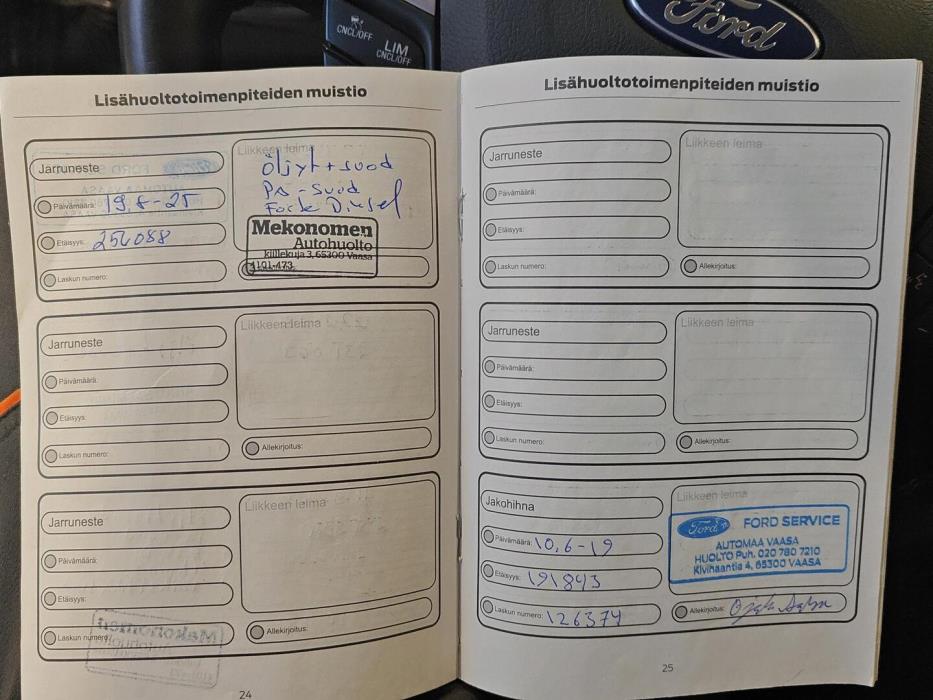 CNCL/OFF
LIM
CNCL/OFF
Ford
Lisähuoltotoimenpiteiden muistio
Jarruneste
Päivämäärä: 19,8-25
Etäisyys: 256088
Laskun numero:
Liikkeen leima
Öljyt + suod
PA-Suod
Forte Diesel
Mekonomen
Autohuolto
kuja 3, 65300 Vaasa
4101-473
Jarruneste
Päivämäärä:
Etäisyys:
Laskun numero:
Liikkeen leima
Allekirjoitus:
Jarruneste
Päivämäärä:
Etäisyys:
Laskun numero:
Liikkeen leima
Allekirjoitus:
24
Lisähuoltotoimenpiteiden muistio
Jarruneste
Päivämäärä:
Etäisyys:
Laskun numero:
Liikkeen leima
Allekirjoitus:
Jarruneste
Päivämäärä:
Etäisyys:
Laskun numero:
Liikkeen leima
Allekirjoitus:
Jakohihna
Päivämäärä: 10,6-19
Etäisyys: 191843
Laskun numero: 126374
Liikkeen leima
Ford FORD SERVICE
AUTOMAA VAASA
HUOLTO Puh. 020 780 7210
Kivihaantie 4, 65300 VAASA
Allekirjoitus:
25